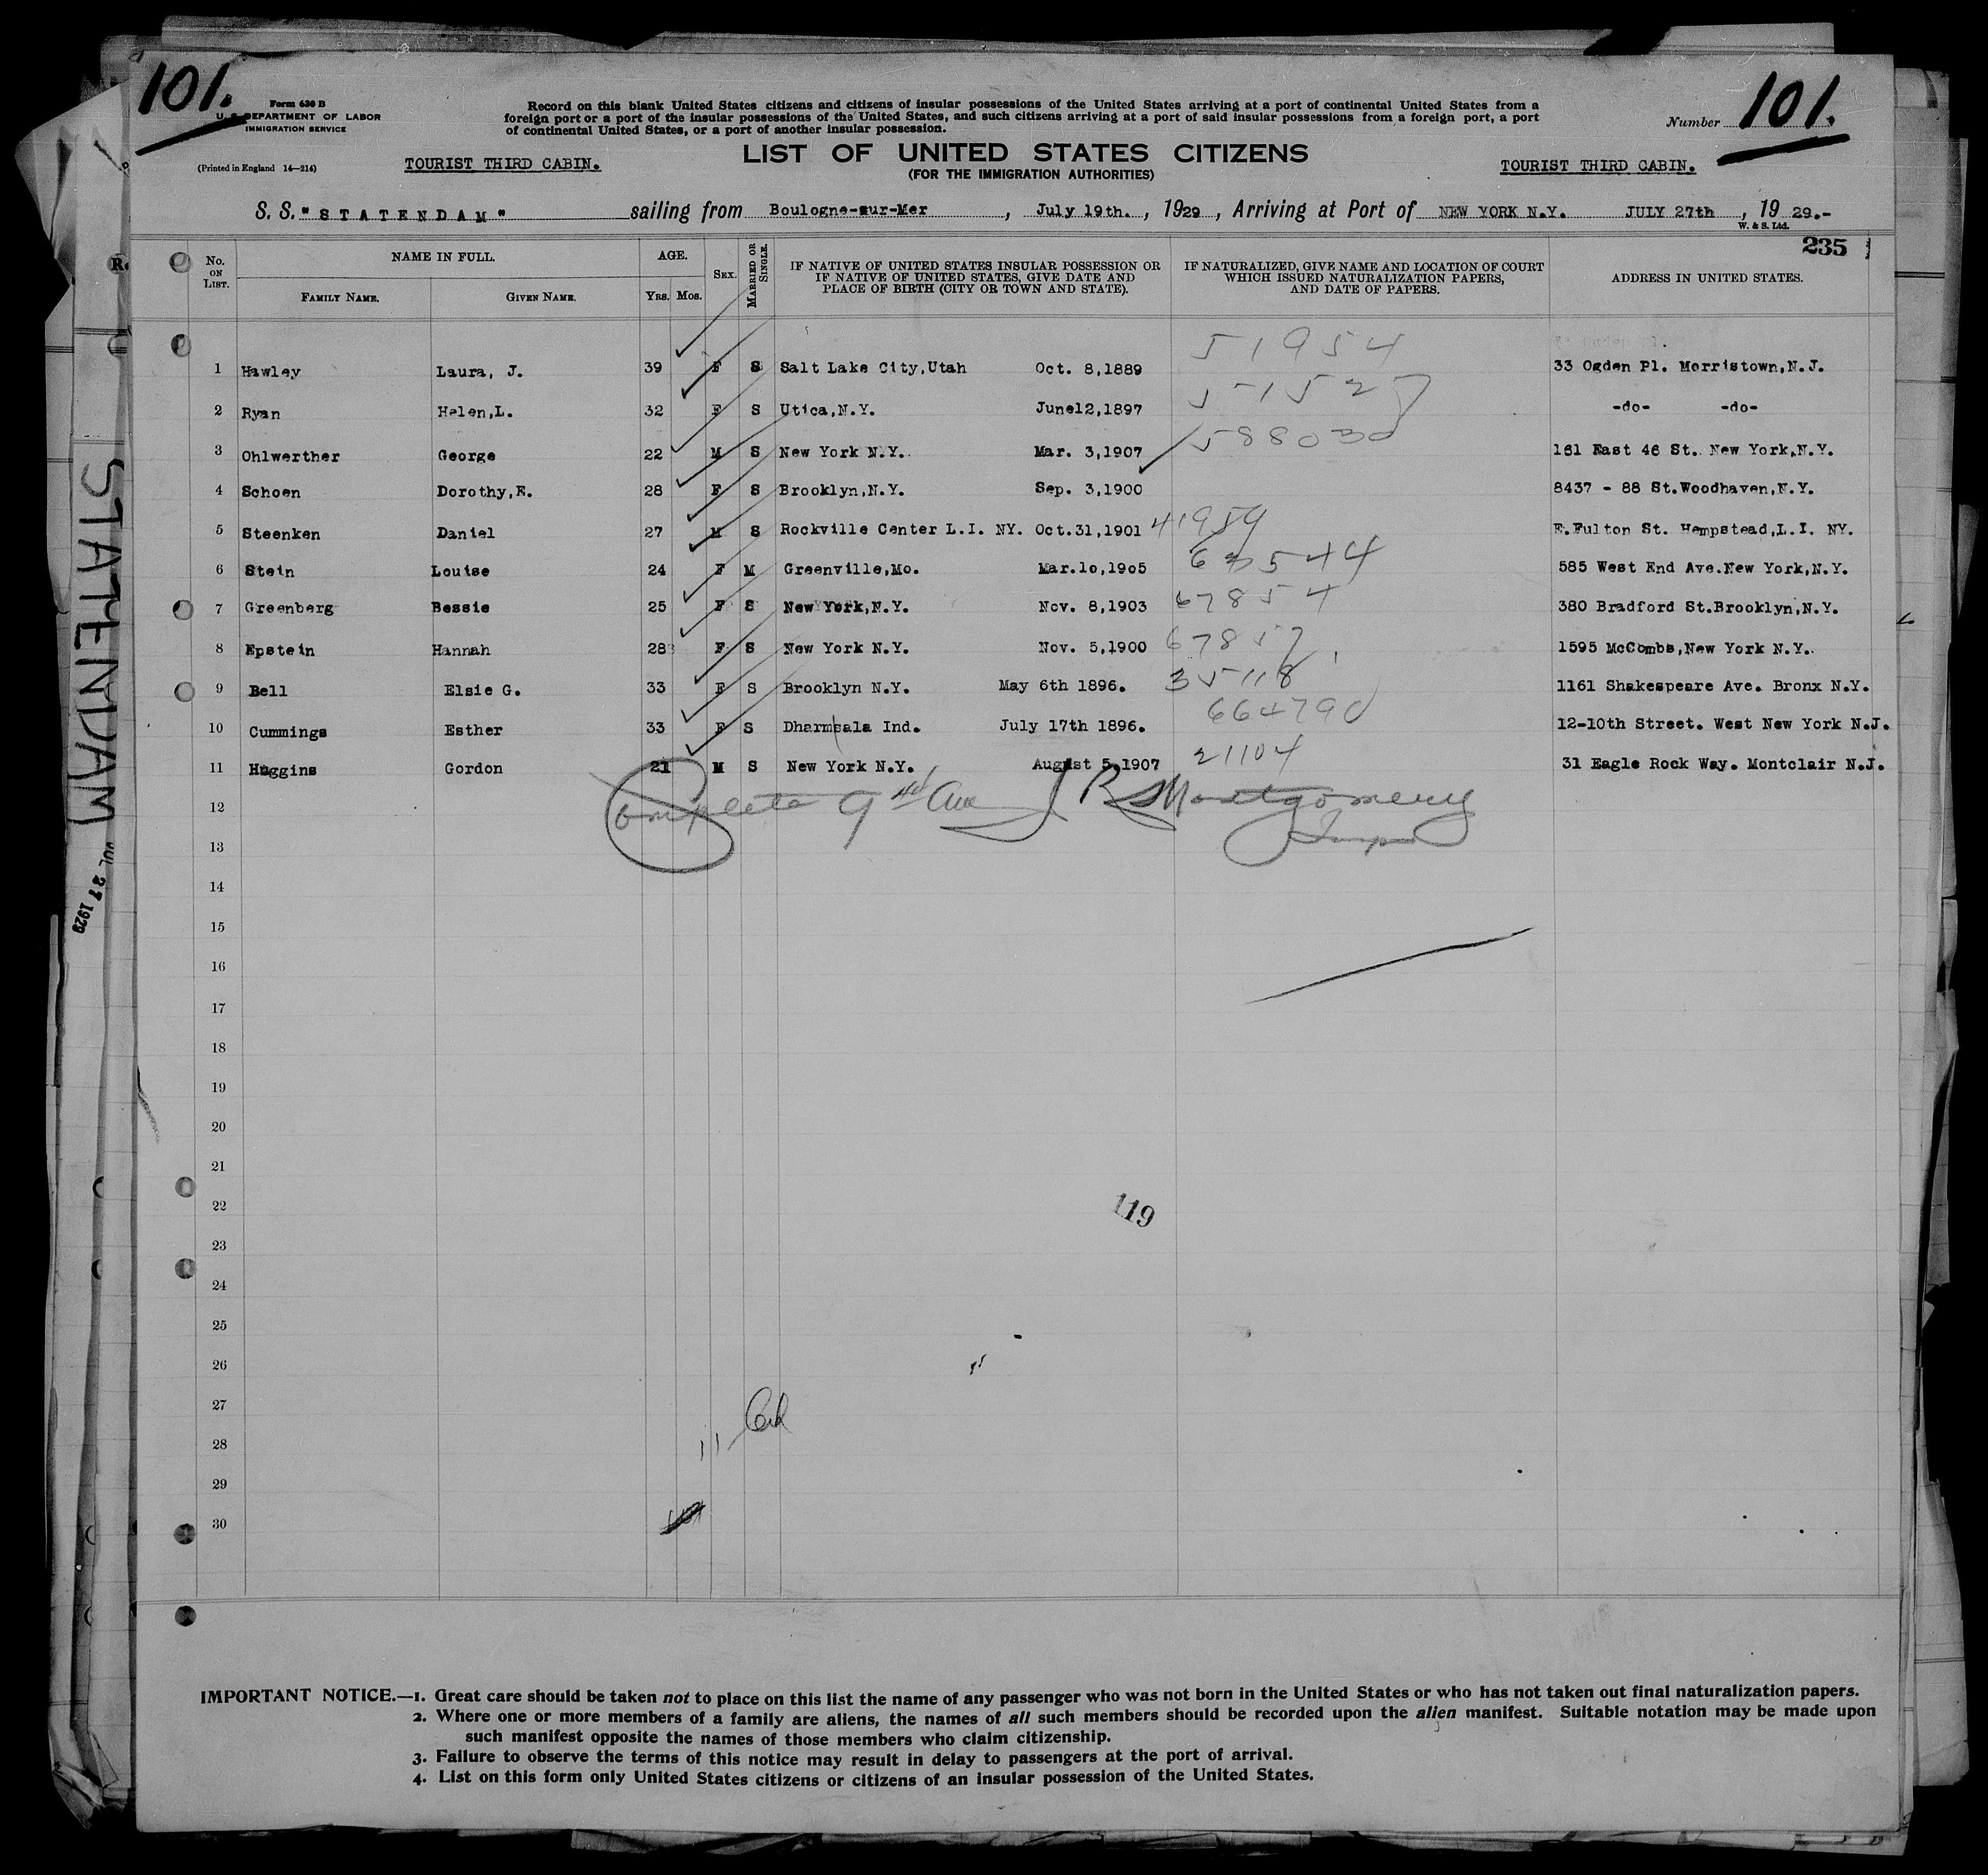 101.
101.
Form 630 B
U. S. DEPARTMENT OF LABOR
IMMIGRATION SERVICE
(Printed in England 14—214)
Record on this blank United States citizens and citizens of insular possessions of the United States arriving at a port of continental United States from a
foreign port or a port of the insular possessions of the United States, and such citizens arriving at a port of said insular possessions from a foreign port, a port
of continental United States, or a port of another insular possession.
Number
LIST OF UNITED STATES CITIZENS
(FOR THE IMMIGRATION AUTHORITIES)
TOURIST THIRD CABIN.
TOURIST THIRD CABIN.
S. S. "STATENDAM" sailing from Boulogne-sur-Mer, July 19th., 1929, Arriving at Port of NEW YORK N.Y. JULY 27th, 19 29.-
W. & S. Ltd.
235
No. ON LIST. NAME IN FULL. AGE. SEX. MARRIED OR SINGLE. IF NATIVE OF UNITED STATES INSULAR POSSESSION OR IF NATIVE OF UNITED STATES, GIVE DATE AND PLACE OF BIRTH (CITY OR TOWN AND STATE). IF NATURALIZED, GIVE NAME AND LOCATION OF COURT WHICH ISSUED NATURALIZATION PAPERS, AND DATE OF PAPERS. ADDRESS IN UNITED STATES.
FAMILY NAME. GIVEN NAME. Yrs. Mos.
1 Hawley Laura, J. 39 F S Salt Lake City,Utah Oct. 8,1889 51954 33 Ogden Pl. Morristown,N.J.
2 Ryan Helen,L. 32 F S Utica,N.Y. June12,1897 51527 -do- -do-
3 Ohlwerther George 22 M S New York N.Y. Mar. 3,1907 588030 161 East 46 St. New York,N.Y.
4 Schoen Dorothy,E. 28 F S Brooklyn,N.Y. Sep. 3,1900 8437 - 88 St.Woodhaven,N.Y.
5 Steenken Daniel 27 M S Rockville Center L.I. NY. Oct.31,1901 41959 E.Fulton St. Hempstead,L.I. NY.
6 Stein Louise 24 F M Greenville,Mo. Mar.10,1905 585 West End Ave.New York,N.Y.
7 Greenberg Bessie 25 F S New York,N.Y. Nov. 8,1903 67854 380 Bradford St.Brooklyn,N.Y.
8 Epstein Hannah 28 F S New York N.Y. Nov. 5,1900 67857 1595 McCombs,New York N.Y.
9 Bell Elsie G. 33 F S Brooklyn N.Y. May 6th 1896. 35118 1161 Shakespeare Ave. Bronx N.Y.
10 Cummings Esther 33 F S Dharmsala Ind. July 17th 1896. 664790 12-10th Street. West New York N.J.
11 Huggins Gordon 21 M S New York N.Y. August 5,1907 21104 31 Eagle Rock Way. Montclair N.J.
12 Complete J R Montgomery
13 Inspr
14
15
16
17
18
19
20
21
22
119
23
24
25
26
27
28
29
30
STATENDAM JUL 27 1929
IMPORTANT NOTICE.—1. Great care should be taken not to place on this list the name of any passenger who was not born in the United States or who has not taken out final naturalization papers.
2. Where one or more members of a family are aliens, the names of all such members should be recorded upon the alien manifest. Suitable notation may be made upon
such manifest opposite the names of those members who claim citizenship.
3. Failure to observe the terms of this notice may result in delay to passengers at the port of arrival.
4. List on this form only United States citizens or citizens of an insular possession of the United States.